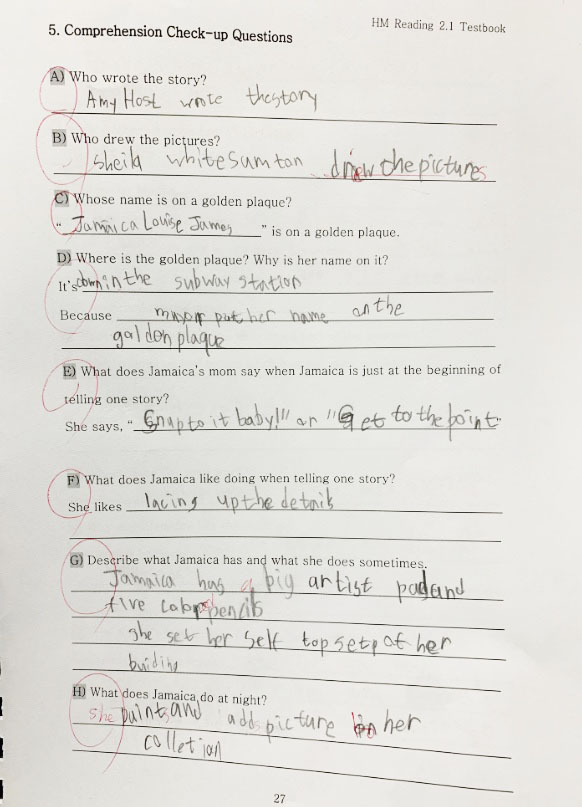 HM Reading 2.1 Testbook
5. Comprehension Check-up Questions
A) Who wrote the story?
Amy Host wrote thestory
B) Who drew the pictures?
sheila whitesumton drew the pictures
C) Whose name is on a golden plaque?
" Jamaica Louise James " is on a golden plaque.
D) Where is the golden plaque? Why is her name on it?
It's down in the subway station
Because mayor put her name on the
goldon plaque
E) What does Jamaica's mom say when Jamaica is just at the beginning of
telling one story?
She says, " Snap to it baby!" or "Get to the point"
F) What does Jamaica like doing when telling one story?
She likes lacing up the details
G) Describe what Jamaica has and what she does sometimes.
Jamaica has a big artist pad and
five color pencils
she set her self top setp of her
buiding
H) What does Jamaica do at night?
she paints and adds picture on her
colletion
27